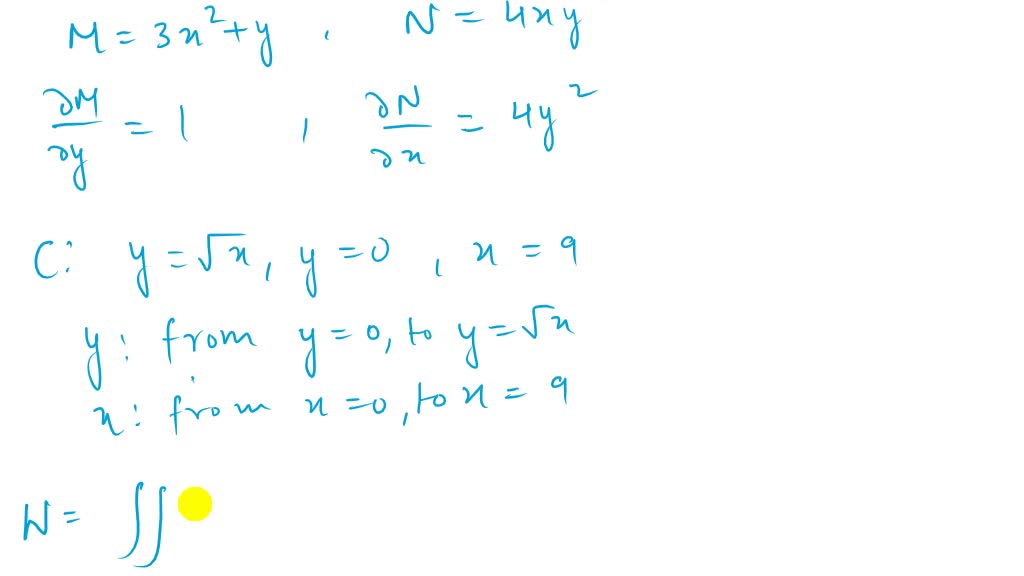 M = 3x² + y , N = 4xy
∂M/∂y = 1 , ∂N/∂x = 4y²
C: y = √x, y = 0 , x = 9
y: from y = 0, to y = √x
x: from x = 0, to x = 9
W = ∬